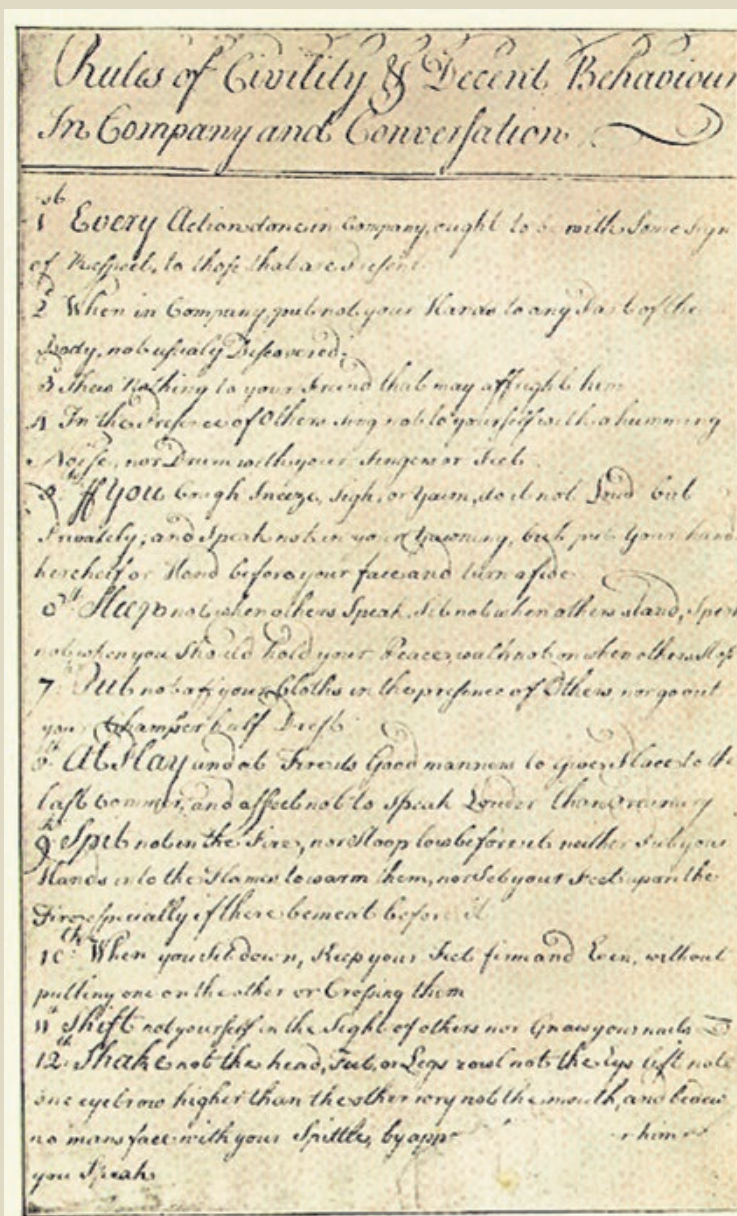 Rules of Civility & Decent Behaviour
In Company and Conversation
1st Every Action done in Company, ought to be with Some Sign
of Respect, to those that are Present.
2d When in Company, put not your Hands to any Part of the
Body, not usualy Discovered.
3 Shew Nothing to your Friend that may affright him
4 In the Presence of Others sing not to yourself with a humming
Noise, nor Drum with your Fingers or Feet
5th If You Cough, Sneeze, Sigh, or Yawn, do it not Loud but
Privately; and Speak not in your Yawning, but put Your hand
kercheif or Hand before your face and turn aside
6th Sleep not when others Speak, Sit not when others stand, Speak
not when you Should hold your Peace, walk not on when others Stop
7th Put not off your Cloths in the presence of Others, nor go out
your Chamber half Drest
8th At Play and at Fire its Good manners to give Place to the
last Commer, and affect not to Speak Louder than ordinary
9th Spit not in the Fire, nor Stoop low before it neither Put your
Hands into the Flames to warm them, nor Set your Feet upon the
Fire especially if there be meat before it
10th When you Sit down, Keep your Feet firm and Even, without
putting one on the other or Crossing them
11th Shift not yourself in the Sight of others nor Gnaw your nails
12th Shake not the head, Feet, or Legs rowl not the Eys lift not
one eyebrow higher than the other wry not the mouth, and bedew
no mans face with your Spittle, by app r him
you Speak